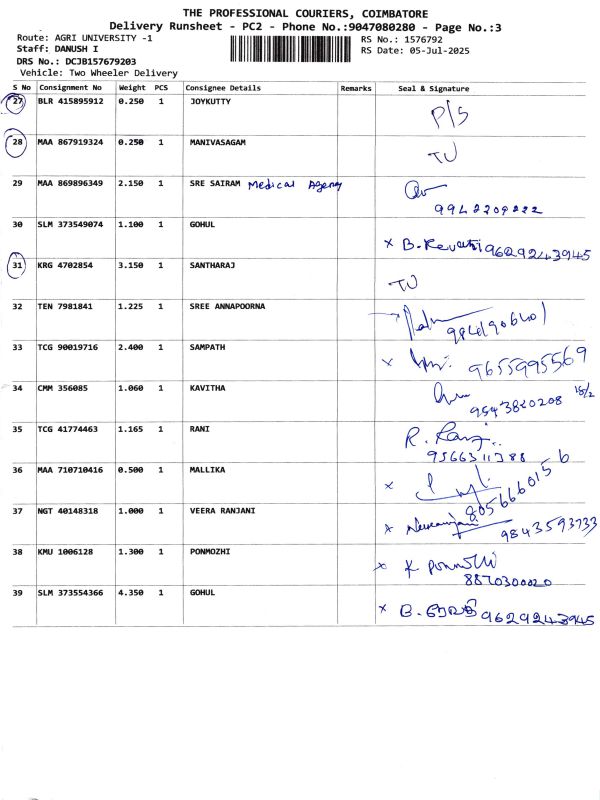 THE PROFESSIONAL COURIERS, COIMBATORE
Delivery Runsheet - PC2 - Phone No.:9047080280 - Page No.:3
Route: AGRI UNIVERSITY -1
RS No.: 1576792
Staff: DANUSH I
RS Date: 05-Jul-2025
DRS No.: DCJB157679203
Vehicle: Two Wheeler Delivery
S No Consignment No Weight PCS Consignee Details Remarks Seal & Signature
27 BLR 415895912 0.250 1 JOYKUTTY P/S
28 MAA 867919324 0.250 1 MANIVASAGAM TU
29 MAA 869896349 2.150 1 SRE SAIRAM Medical Agency
9942209222
30 SLM 373549074 1.100 1 GOHUL x B. Revathi 9629243945
31 KRG 4702854 3.150 1 SANTHARAJ TU
32 TEN 7981841 1.225 1 SREE ANNAPOORNA
33 TCG 90019716 2.400 1 SAMPATH x 9655995569
34 CMM 356085 1.060 1 KAVITHA
9543820208
35 TCG 41774463 1.165 1 RANI R. Rani
9566311388
36 MAA 710710416 0.500 1 MALLIKA x 8056660156
37 NGT 40148318 1.000 1 VEERA RANJANI x
9843593733
38 KMU 1006128 1.300 1 PONMOZHI x K Ponmozhi
8870300020
39 SLM 373554366 4.350 1 GOHUL x B. 9629243945